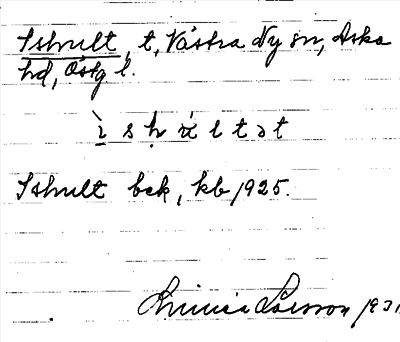 Ishult, t, Västra Ny sn, Aska
hd, Östg l.
Ishult bek, kb 1925.
Linnea Larsson 1931